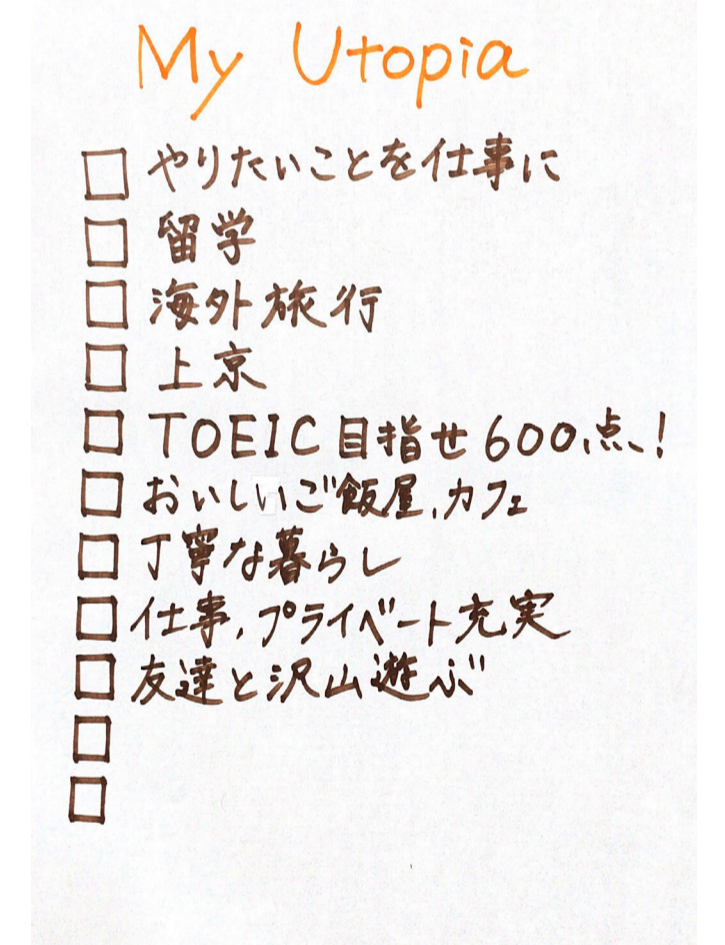 My Utopia
□ やりたいことを仕事に
□ 留学
□ 海外旅行
□ 上京
□ TOEIC 目指せ600点!
□ おいしいご飯屋,カフェ
□ 丁寧な暮らし
□ 仕事,プライベート充実
□ 友達と沢山遊ぶ
□
□